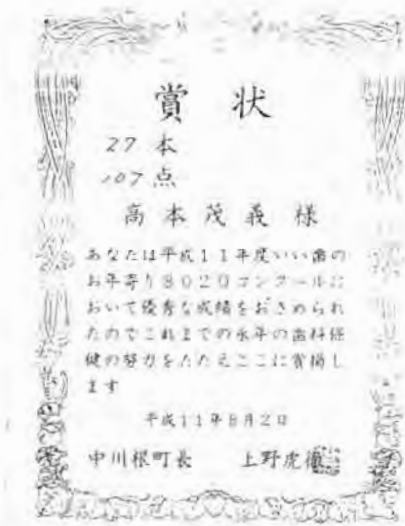 賞 状
27 本
107 点
高本茂義 様
あなたは平成11年度いい歯の
お年寄り8020コンクールに
おいて優秀な成績をおさめられ
たのでこれまでの永年の歯科保
健の努力をたたえここに賞揚し
ます
平成11年8月2日
中川根町長 上野虎